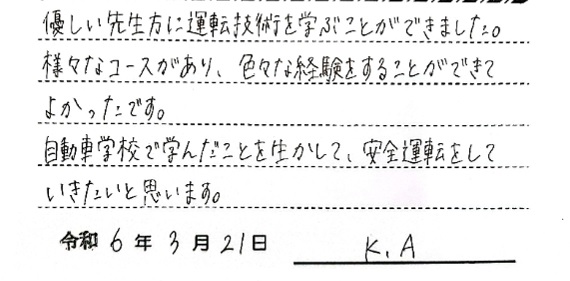 優しい先生方に運転技術を学ぶことができました。
様々なコースがあり、色々な経験をすることができて
よかったです。
自動車学校で学んだことを生かして、安全運転をして
いきたいと思います。
令和6年3月21日 K.A